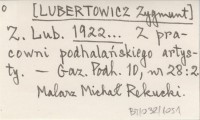 [LUBERTOWICZ Zygmunt]
Z. Lub. 1922... Z pra-
cowni podhalańskiego artys-
ty. — Gaz. Podh. 10, nr 28:2
Malarz Michał Rekucki.